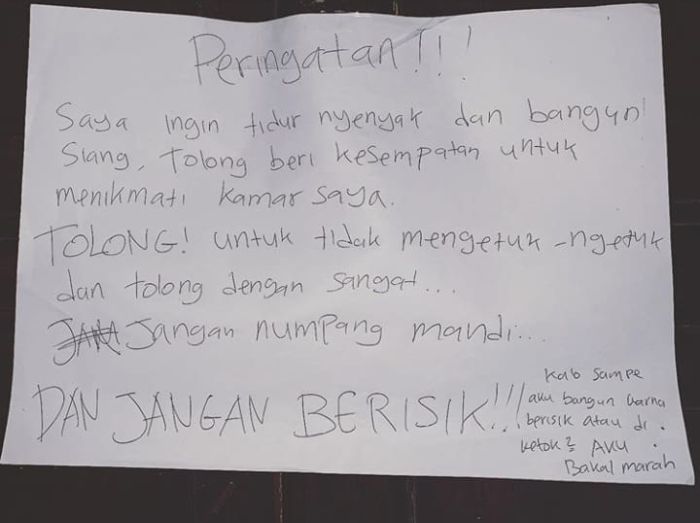 Peringatan!!!
Saya ingin tidur nyenyak dan bangun
Siang, Tolong beri kesempatan untuk
menikmati kamar saya.
TOLONG! untuk tidak mengetuk-ngetuk
dan tolong dengan sangat...
Jangan numpang mandi...
DAN JANGAN BERISIK!!!
Kab sampe
aku bangun karna
berisik atau di
ketok2 Aku
Bakal marah